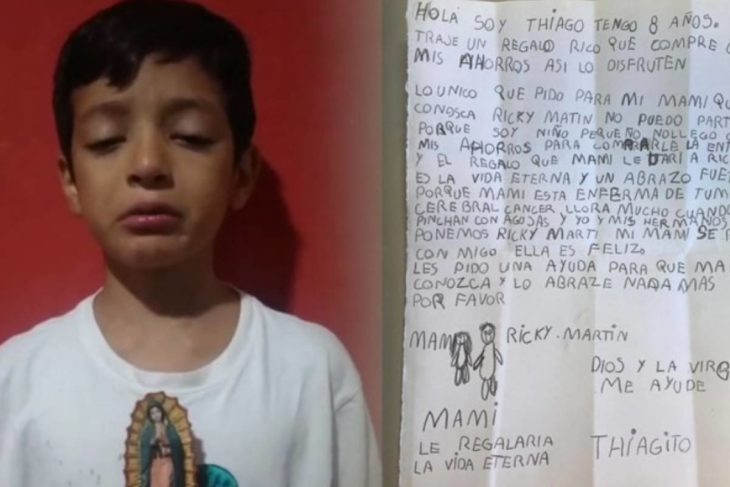 HOLA SOY THIAGO TENGO 8 AÑOS.
TRAJE UN REGALO RICO QUE COMPRE
MIS AHORROS ASI LO DISFRUTEN
LO UNICO QUE PIDO PARA MI MAMI
CONOSCA RICKY MATIN NO PUEDO
PORQUE SOY NIÑO PEQUEÑO NOLLEGO
MIS AHORROS PARA LA
Y EL REGALO QUE MAMI LE
ES LA VIDA ETERNA Y UN ABRAZO
PORQUE MAMI ESTA ENFERMA DE
CEREBRAL CANCER LLORA MUCHO CUANDO
PINCHAN CON AGOJAS Y YO Y MIS HERMANOS
PONEMOS RICKY MARTI MI MAMI SE
CON MIGO ELLA ES FELIZ.
LES PIDO UNA AYUDA PARA QUE MA
CONOZCA Y LO ABRAZE NADA MAS
POR FAVOR
RICKY.MARTIN
DIOS Y LA
ME AYUDE
MAMI
LE REGALARIA
LA VIDA ETERNA
THIAGITO